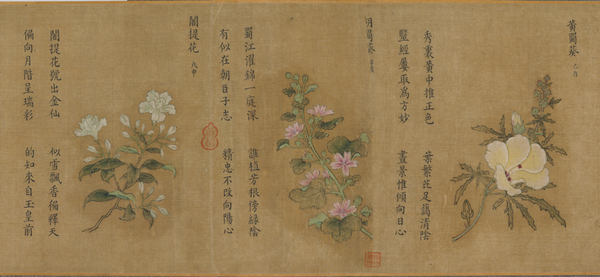 黃蜀葵
秀裏黃中推正色 葉繁花足藹清陰
毉經屢取為方妙 晝景惟傾向日心
葵
蜀江濯錦一庭深 誰植芳根傍綠陰
有似在朝臣子志 積忠不改向陽心
闍提花
闍提花號出金仙 似雪飄香徧釋天
偏向月階呈瑞彩 的知來自玉皇前